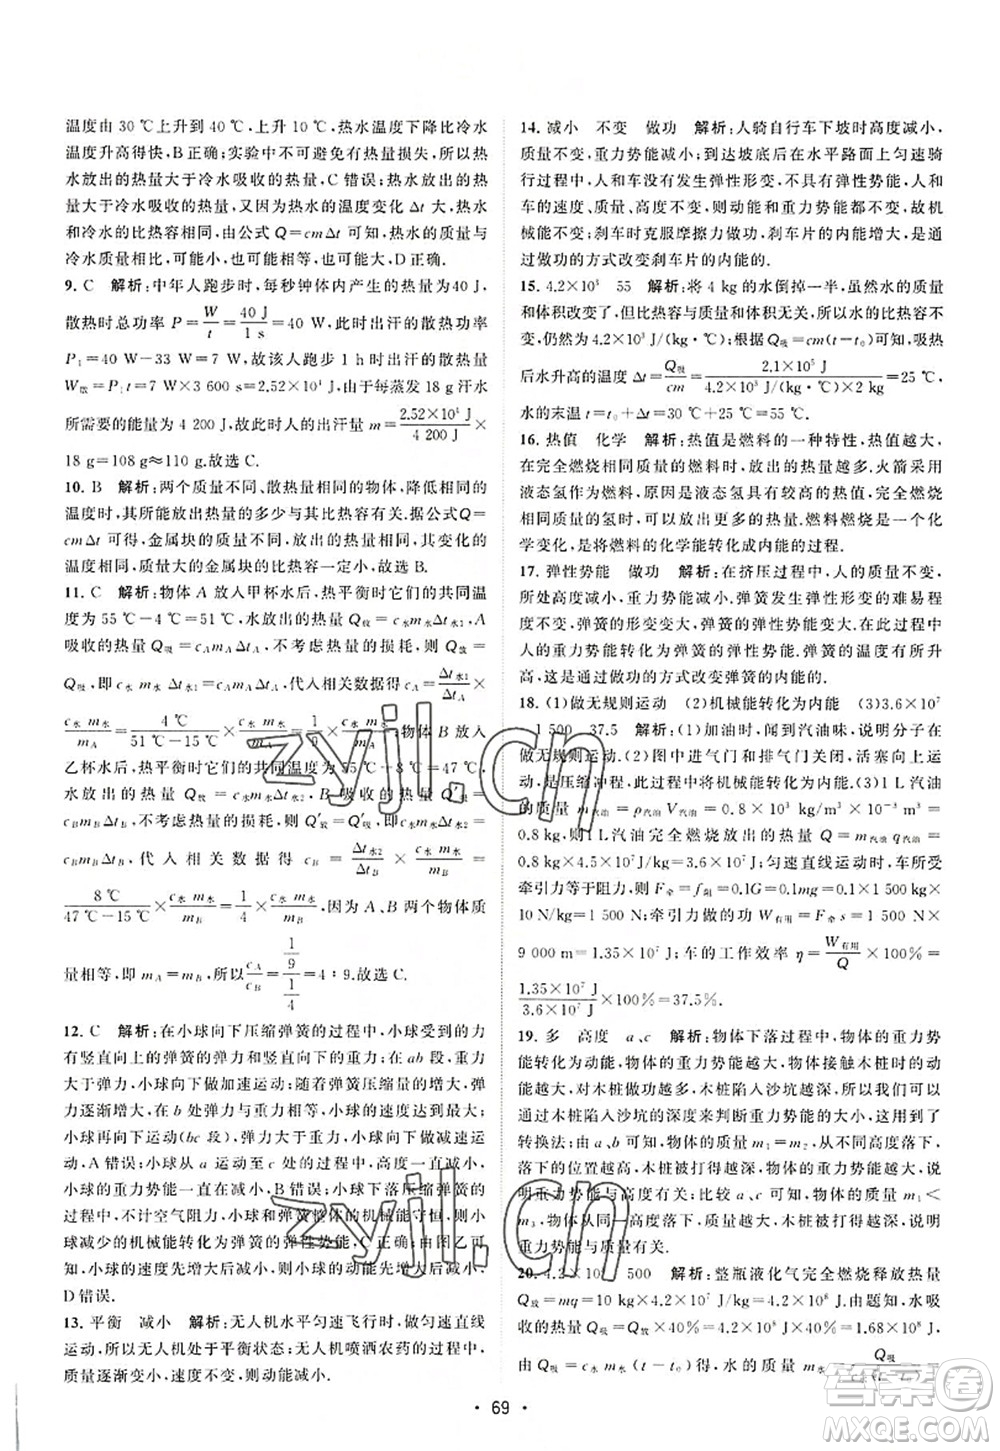 温度由 30 ℃上升到 40 ℃,上升 10 ℃,热水温度下降比冷水
温度升高得快,B 正确;实验中不可避免有热量损失,所以热
水放出的热量大于冷水吸收的热量,C 错误;热水放出的热
量大于冷水吸收的热量,又因为热水的温度变化 Δt 大,热水
和冷水的比热容相同,由公式 Q=cmΔt 可知,热水的质量与
冷水质量相比,可能小,可能相等,也可能大,D 正确.
9. C 解析:中年人跑步时,每秒钟体内产生的热量为 40 J,
散热时总功率 P=W/t=40 J/1 s=40 W,此时出汗的散热功率
P₁=40 W-33 W=7 W,故该人跑步 1 h 时出汗的散热量
W散=P₁t=7 W×3 600 s=2.52×10⁴ J,由于每蒸发 18 g 汗水
的能量为 4 200 J,故此时人的出汗量 m=2.52×10⁴ J/4 200 J×
18 g=108 g≈110 g.故选 C.
10. B 解析:两个质量不同、散热量相同的物体,降低相同的
温度时,其所能放出热量的多少与其比热容有关,根据公式 Q=
cmΔt 可知,金属块的质量越大,放出的热量一定,降低相同
温度时,质量大的金属块的比热容一定小,故选 B.
11. C 解析:物体 A 放入甲杯水后,热平衡时它们的共同温
度为 55 ℃-4 ℃=51 ℃,水放出的热量 Q放=c水m水Δt水1,A
吸收的热量 Q吸=cAmAΔtA,不考虑热量损失,则有 Q放=
Q吸,即 c水 m水 Δt水1=cAmAΔtA,代入相关数据 cA=Δt水1/ΔtA×
c水 m水/mA=4 ℃/51 ℃-15 ℃×c水 m水/mA=1/9×c水 m水/mA,物体 B 放入
乙杯水中,热平衡时它们的共同温度为 55 ℃-8 ℃=47 ℃,
水放出的热量 Q′放=c水 m水 Δt水2,B 吸收的热量 Q′吸=
cBmBΔtB,不考虑热量损失,则有 Q′放=Q′吸,即 c水 m水 Δt水2=
cBmBΔtB,代入相关数据得 cB=Δt水2/ΔtB×c水 m水/mB=
8 ℃/47 ℃-15 ℃×c水 m水/mB=1/4×c水 m水/mB,因为 A、B 两个物体质
量相等,即 mA=mB,所以cA/cB=(1/9)/(1/4)=4∶9.故选 C.
12. C 解析:在小球向下压缩弹簧的过程中,小球受到的力
有竖直向下的重力、竖直向上的弹力;在 ab 段,重力大于弹
力,合力向下,小球做加速运动;随着弹簧压缩量的增大,弹
力逐渐增大,在 b 处弹力等于重力,小球的速度达到最大;小
球再向下运动(bc 段),弹力大于重力,小球做减速运动,所
以,A 错误;小球从 a 运动至 c 处的过程中,高度一直减小,小
球的重力势能一直在减小,B 错误;小球下落压缩弹簧的过
程中,不计空气阻力,小球和弹簧整体的机械能守恒,但小
球的机械能转化为弹簧的弹性势能,C 正确;由图乙可知,
小球的速度先增大后减小,所以小球的动能先增大后减小,
D 错误.
13. 平衡 减小 解析:无人机水平匀速飞行时,做匀速直线
运动,所以无人机处于平衡状态;无人机喷洒农药的过程中,
质量逐渐变小,速度不变,动能逐渐减小.
14. 减小 不变 做功 解析:人骑自行车下坡时高度减小,
质量不变,重力势能减小;到达坡底后在水平路面上匀速骑
行过程中,人和车没有发生弹性形变,不具有弹性势能,人和
车的速度、质量、高度不变,则动能和重力势能都不变,故机
械能不变;刹车时克服摩擦力做功,刹车片的内能增大,故通
过做功的方式改变刹车片的内能的.
15. 4.2×10³ 55 解析:将 4 kg 的水倒掉一半,虽然水的质量
和体积改变了,但比热容与质量和体积无关,所以水的比热容
仍为 4.2×10³ J/(kg·℃);由 Q吸=cm(t-t₀)可知,吸热
后水升高的温度 Δt=Q吸/cm=2.1×10⁵ J/4.2×10³ J/(kg·℃)×2 kg=25 ℃,
水的末温 t=t₀+Δt=30 ℃+25 ℃=55 ℃.
16. 热值 化学 解析:热值是燃料的一种特性,热值越大,
在完全燃烧相同质量的燃料时,放出的热量越多.火箭采用
液态氢作为燃料,原因是液态氢具有较高的热值,完全燃烧
相同质量的氢时,可以放出较大的热量.燃料燃烧是一个化
学变化,是将燃料的化学能转化成内能的过程.
17. 弹性势能 做功 解析:在挤压过程中,人的质量不变,
所处高度减小,重力势能减小.弹簧发生弹性形变的难易程
度不同,弹簧的形变变大,弹簧的弹性势能变大,在此过程中
人的一部分重力势能转化为弹簧的弹性势能;弹簧的内能有所升
高,故通过做功的方式改变弹簧的内能的.
18. (1)做无规则运动 (2)机械能转化为内能 (3)3.6×10⁷
1 500 37.5 解析:(1)加油时,闻到汽油味,说明分子在
做无规则运动.(2)图中进气门和排气门关闭,活塞向上运
动,是压缩冲程,此过程将机械能转化为内能.(3)1 L 汽油
的质量 m汽油=ρ汽油V汽油=0.8×10³ kg/m³×1×10⁻³ m³=
0.8 kg,则 1 L 汽油完全燃烧放出的热量 Q=m汽油q汽油=
0.8 kg×4.5×10⁷ J/kg=3.6×10⁷ J;匀速直线运动时,车所受
牵引力等于阻力,F牵=f阻=0.1G=0.1mg=0.1×1.5×10³ kg×
10 N/kg=1 500 N;牵引力做的功 W有用=F牵s=1 500 N×
9 000 m=1.35×10⁷ J;车的工作效率 η=W有用/Q×100%=
1.35×10⁷ J/3.6×10⁷ J×100%=37.5%.
19. 多 高度 a、c 解析:物体下落过程中,物体的重力势
能转化为动能,物体的重力势能越大,物体接触木桩时的动
能越大,对木桩做功越多,木桩陷入沙坑越深,所以可以
通过木桩陷入沙坑的深度来判断重力势能的大小,这用到了
转换法;由 a、b 可知,物体的质量 m₁=m₂,木桩越深,物体落
下的位置越高,木桩陷得越深,则物体的重力势能越大,说
明重力势能与高度有关;比较 a、c 可知,物体的质量 m₁<
m₃,物体从同一高度落下,质量越大,木桩陷得越深,说明
重力势能与质量有关.
20. 4.2×10⁸ 500 解析:整瓶液化气完全燃烧释放热量
Q放=mq=10 kg×4.2×10⁷ J/kg=4.2×10⁸ J,由题知,水吸
收的热量 Q吸=Q放×40%=4.2×10⁸ J×40%=1.68×10⁸ J
由 Q吸=c水 m水(t-t₀)得,水的质量 m水=Q吸/c水(t-t₀)=
· 69 ·
zyjl.cn
zyjl.cn
答案圈
MXQE.COM